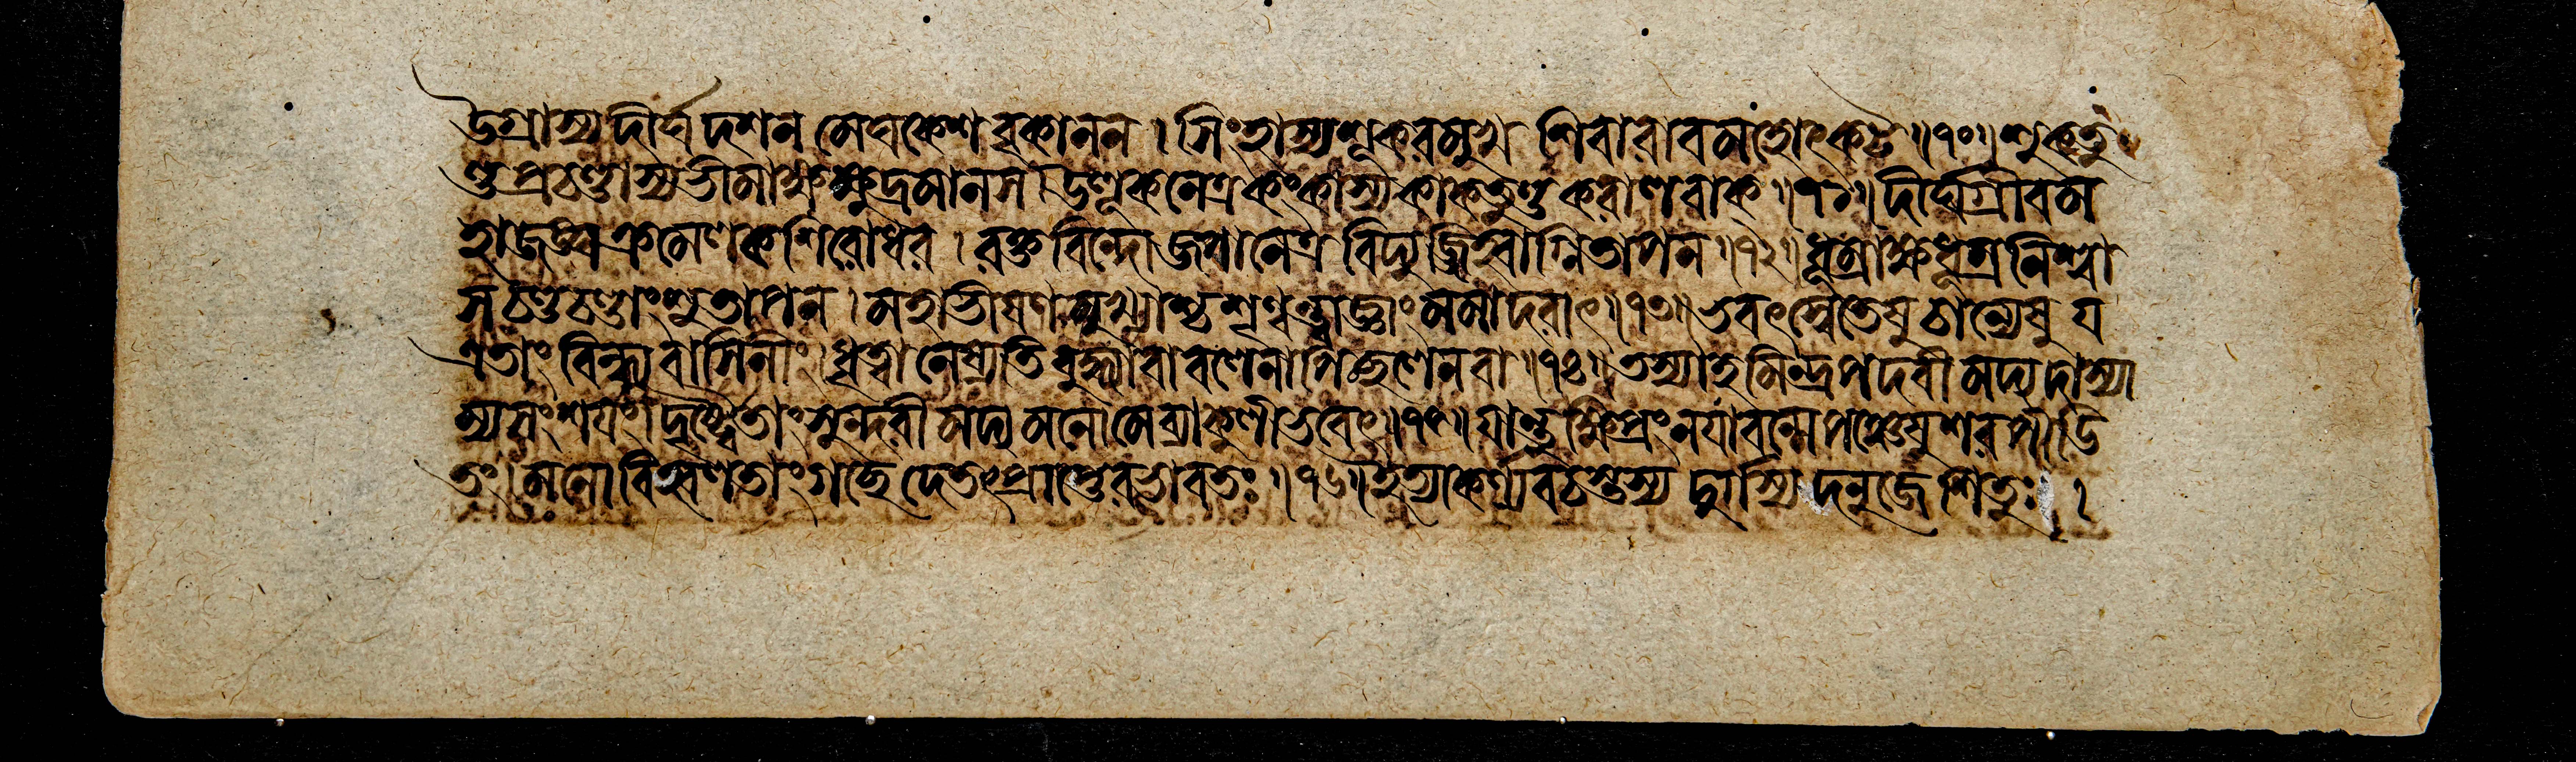 উগ্রাস্য দীর্ঘ দশন মেঘকেশ বৃকানন । সিংহাস্যশূকরমুখ শিবারাবমদোৎকট ॥১০॥ শুকতু
ণ্ডপ্রচণ্ডাস্যভীমাক্ষক্ষুদ্রমানস । উলূকনেত্রকংকাস্যকাকতুণ্ডকরালবাক্ ॥১১॥ দীর্ঘগ্রীবম
হাজঙ্ঘক্রমেলকশিরোধর । রক্তবিন্দো জবানেত্র বিদ্যুজ্জিহ্বাগ্নিতাপন ॥১২॥ ধূম্রাক্ষধূম্রনিশ্বা
সচণ্ডচণ্ডাংশুতাপন । মহাভীষণমুখ্যাশ্চ শৃণ্বন্ত্বাজ্ঞাং মমাদরাৎ ॥১৩॥ ভবৎস্বেতেষু চান্যেষু য
এতাং বিন্ধ্যবাসিনীং । ধৃত্বা নেষ্যতি বুদ্ধ্যা বা বলেনাপি ছলেন বা ॥১৪॥ তস্যাহমিন্দ্রপদবীমদ্য দাস্যা
ম্যসংশয়ং । দৃষ্ট্বৈতাং সুন্দরীমদ্য মনো মে ব্যাকুলীভবেৎ ॥১৫॥ যান্তু ক্ষিপ্রং নয়াবন্মে পঞ্চেষুশরপীডি
তং । মনো বিহ্বলতাং গচ্ছেদেতৎপ্রাপ্তেরভাবতঃ ॥১৬॥ ইত্যাকর্ণ্য বচস্তস্য দুর্গস্য দনুজেশিতুঃ ।